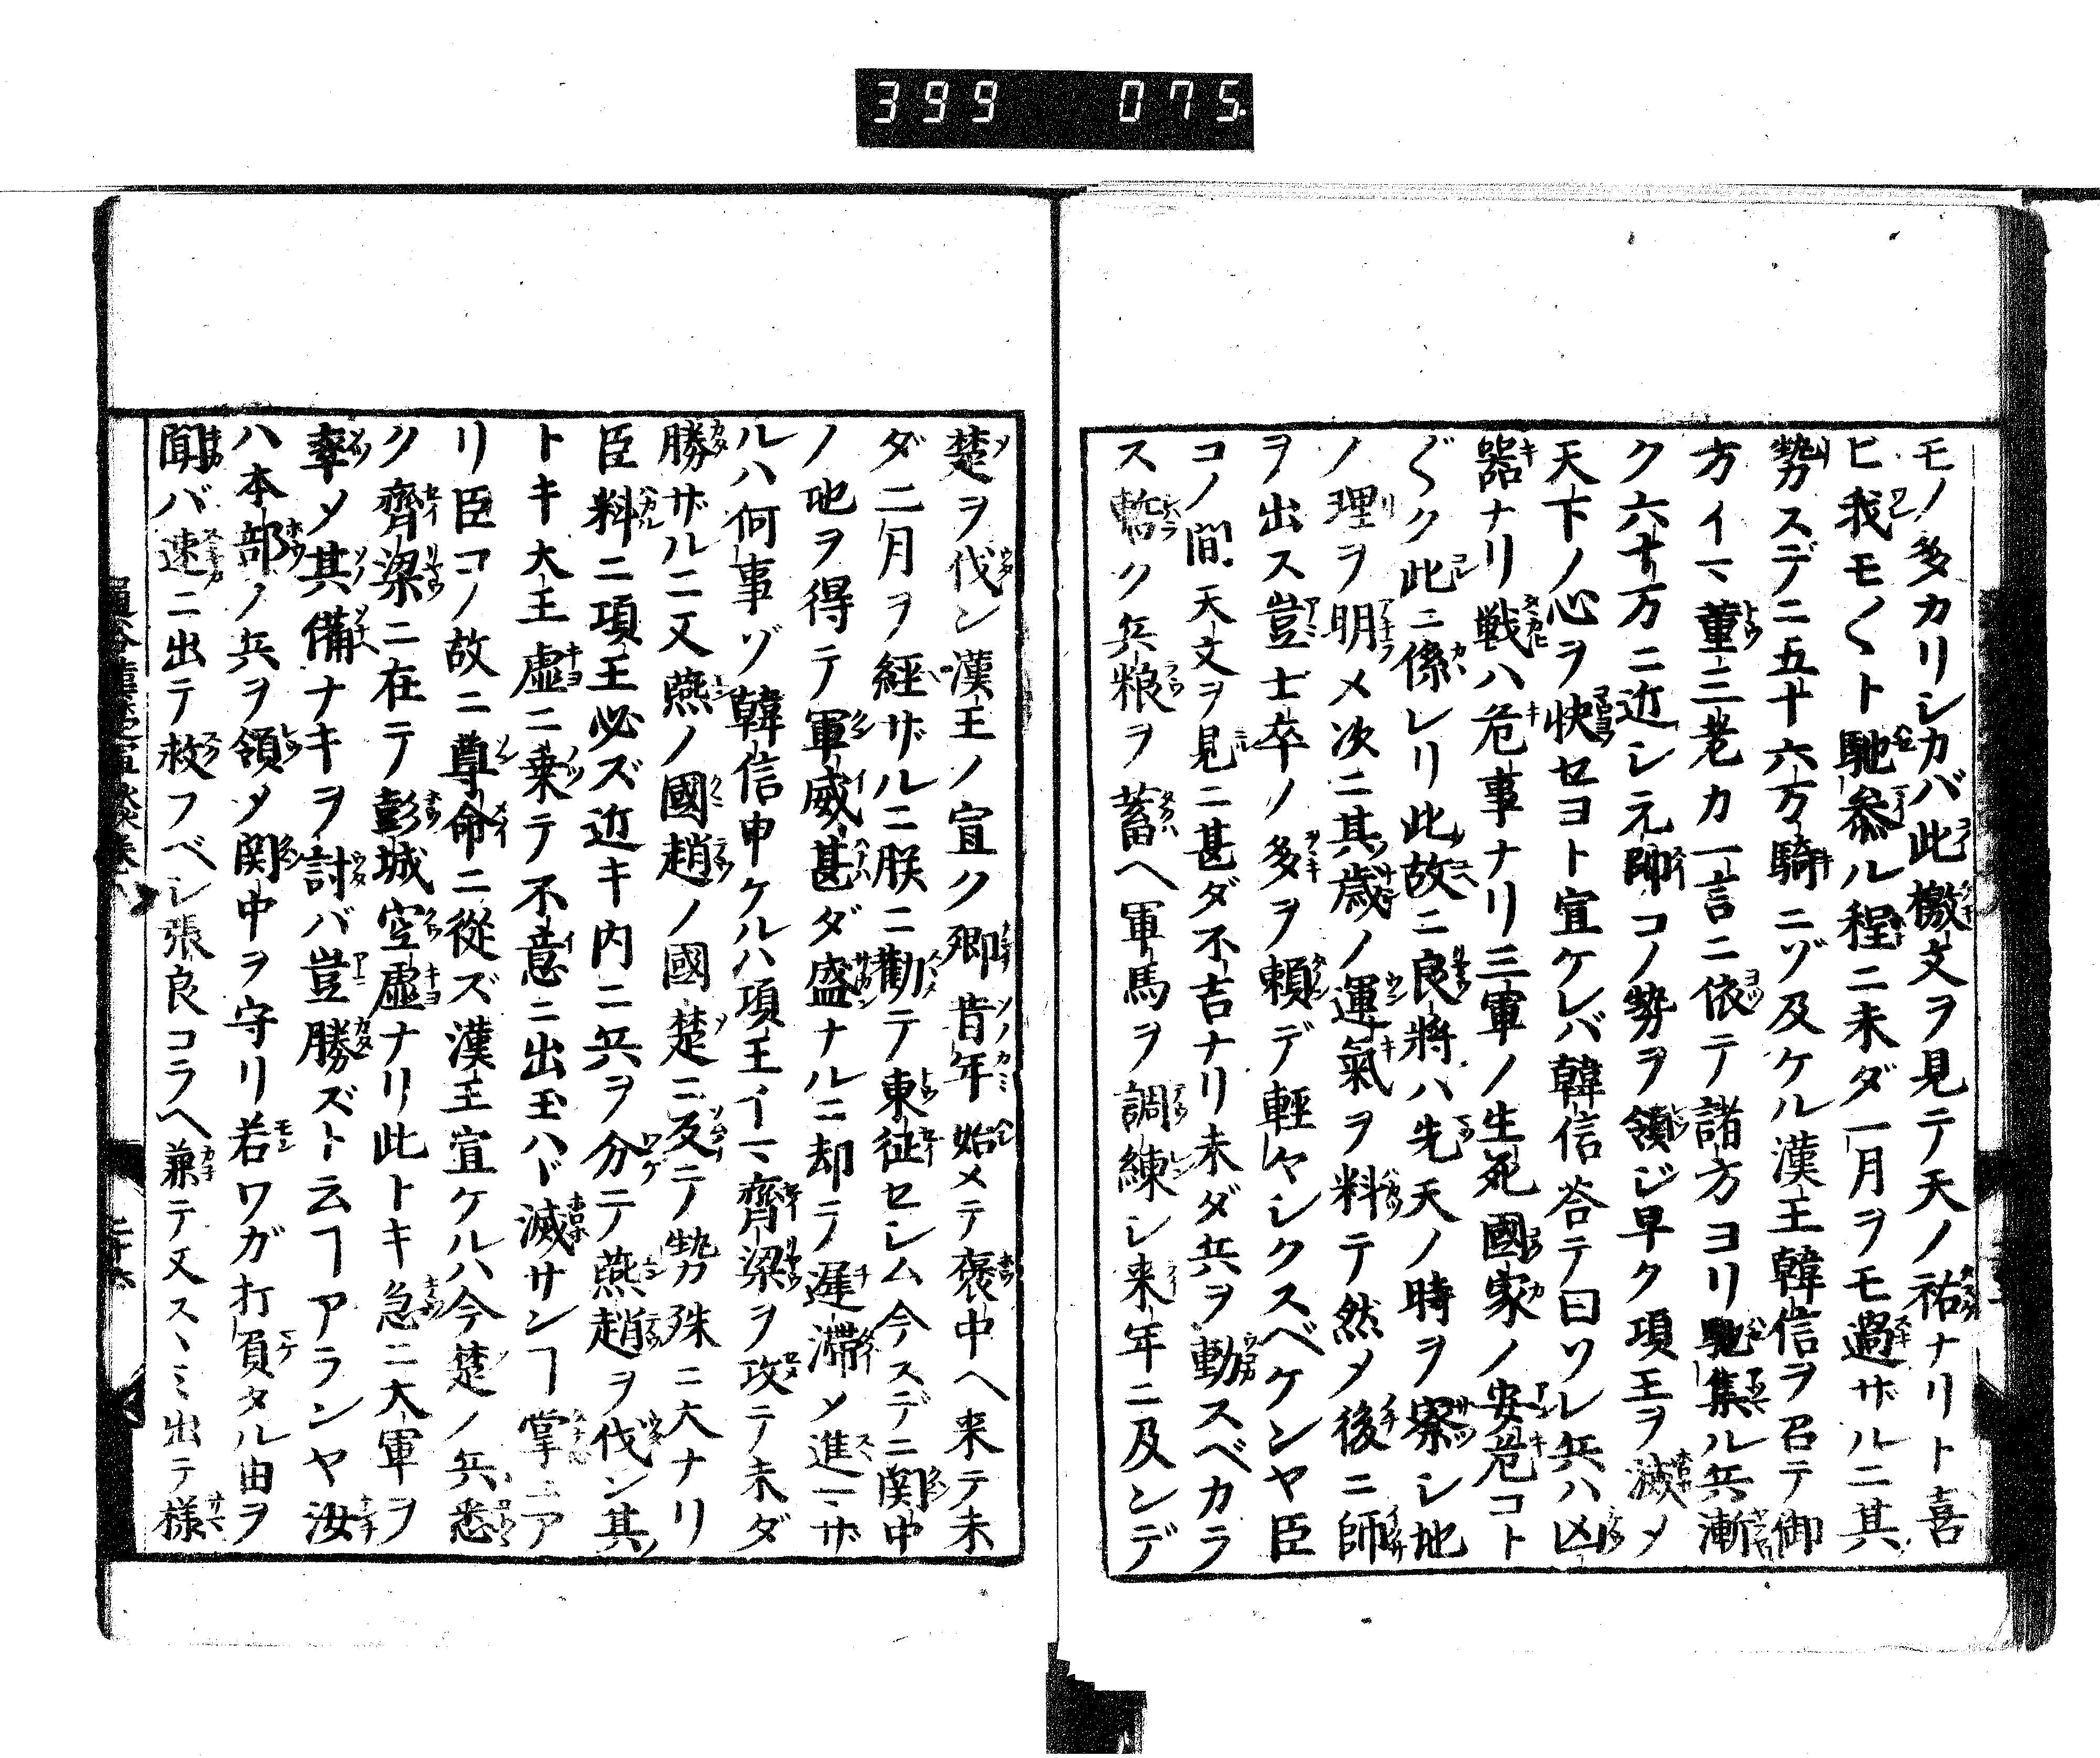 399 075
モノ多カリシカバ此檄文ヲ見テ天ノ祐ナリト喜
ヒ我モ〱ト馳参ル程ニ未ダ一月ヲモ過ザルニ其
勢スデニ五十六万騎ニゾ及ケル漢王韓信ヲ召テ御
方イマ董三老カ一言ニ依テ諸方ヨリ馳集ル兵漸
ク六十万ニ近シ元帥コノ勢ヲ領ジ早ク項王ヲ滅メ
天下ノ心ヲ快セヨト宣ケレバ韓信荅テ曰ソレ兵ハ凶
噐ナリ戦ハ危事ナリ三軍ノ生死國家ノ安危コト
〲ク此ニ係レリ此故ニ良将ハ先天ノ時ヲ察シ地
ノ理ヲ明メ次ニ其歳ノ運氣ヲ料テ然メ後ニ師
ヲ出ス豈士卒ノ多ヲ頼デ輕ヤシクスベケンヤ臣
コノ間天文ヲ見ニ甚ダ不吉ナリ未ダ兵ヲ動スベカラ
ス暫ク兵粮ヲ蓄ヘ軍馬ヲ調練シ来年ニ及ンデ
楚ヲ伐ン漢王ノ宣ク卿昔年始メテ褒中ヘ来テ未
ダ二月ヲ経ザルニ朕ニ勸テ東征セシム今スデニ関中
ノ地ヲ得テ軍威甚ダ盛ナルニ却テ遅滞メ進マザ
ルハ何事ゾ韓信申ケルハ項王イマ齊梁ヲ攻テ未ダ
勝ザルニ又燕ノ國趙ノ國楚ニ反テ勢殊ニ大ナリ
臣料ニ項王必ズ近キ内ニ兵ヲ分テ燕趙ヲ伐ン其
トキ大王虚ニ乗テ不意ニ出玉ハヾ滅サンヿ掌ニア
リ臣コノ故ニ尊命ニ從ズ漢王宣ケルハ今楚ノ兵悉
ク齊梁ニ在テ彭城空虚ナリ此トキ急ニ大軍ヲ
率メ其備ナキヲ討バ豈勝ズト云ヿアランヤ汝
ハ本部ノ兵ヲ領メ関中ヲ守リ若ワガ打負タル由ヲ
聞バ速ニ出テ救フベシ張良コラヘ兼テ又スヽミ出テ様